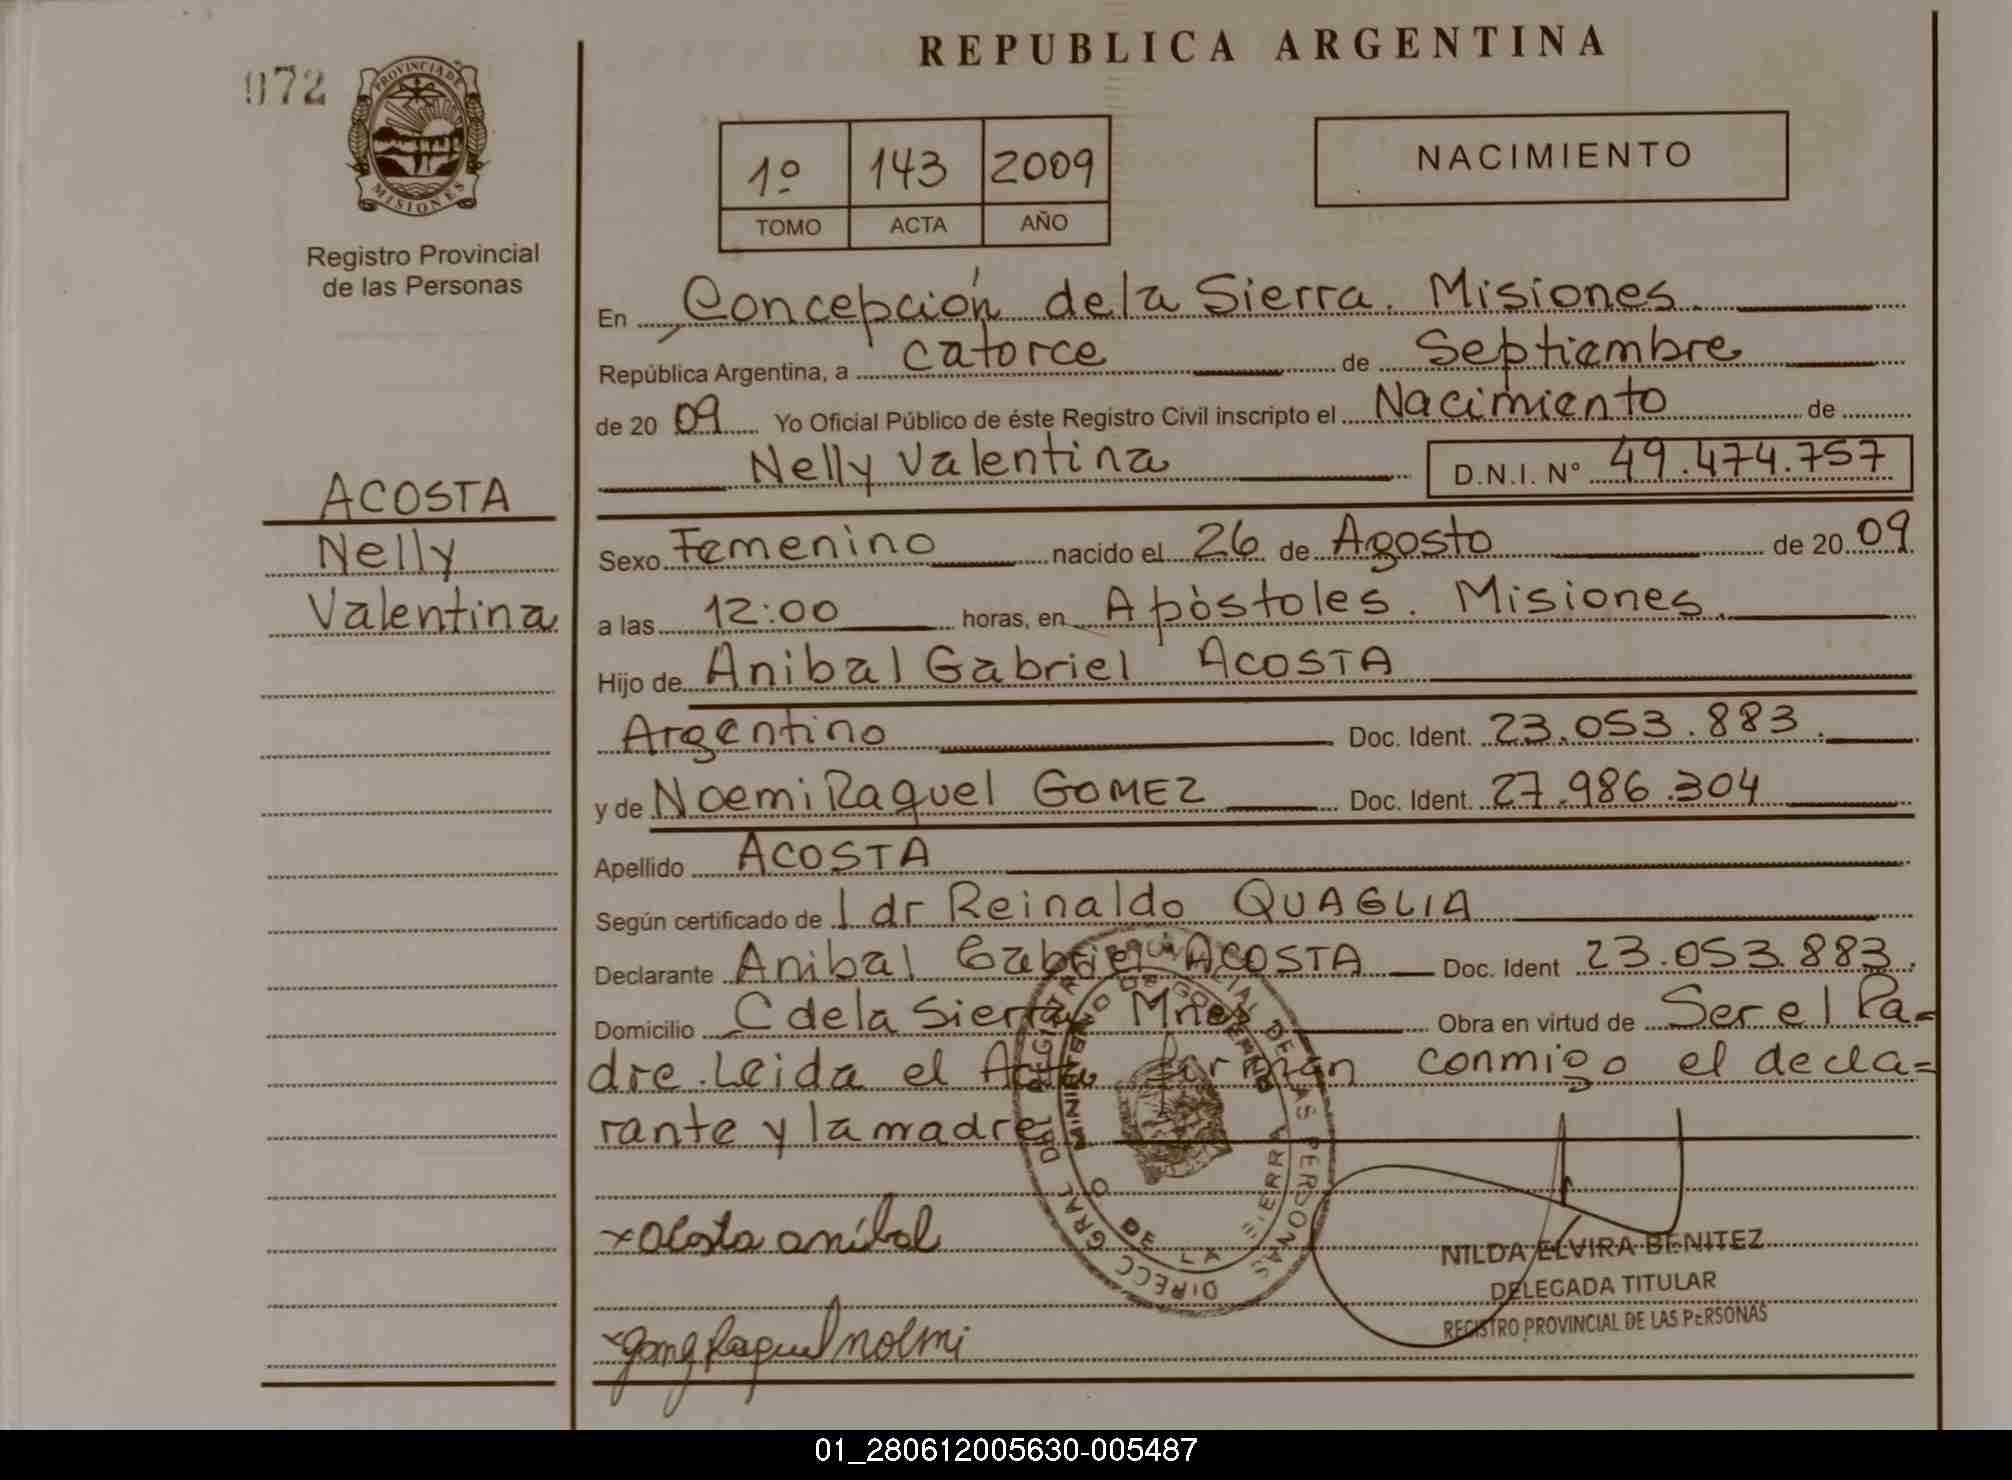 REPUBLICA ARGENTINA
072
PROVINCIA DE
MISIONES
Registro Provincial
de las Personas
1º 143 2009
TOMO ACTA AÑO
NACIMIENTO
En Concepción de la Sierra. Misiones.
República Argentina, a catorce de Septiembre
de 2009 Yo Oficial Público de éste Registro Civil inscripto el Nacimiento de
Nelly Valentina D.N.I. Nº 49.474.757
ACOSTA
Nelly
Valentina
Sexo Femenino nacido el 26 de Agosto de 2009
a las 12:00 horas, en Apóstoles. Misiones.
Hijo de Anibal Gabriel ACOSTA
Argentino Doc. Ident. 23.053.883.
y de Noemi Raquel GOMEZ Doc. Ident. 27.986.304
Apellido ACOSTA
Según certificado de I dr Reinaldo QUAGLIA
Declarante Anibal Gabriel ACOSTA Doc. Ident 23.053.883.
Domicilio C de la Sierra Mnes Obra en virtud de Ser el Pa=
dre. Leida el Acta firman conmigo el decla=
rante y la madre
x Acosta anibal
x gomez Raquel noemi
DIRECC GRAL DEL REGISTRO PROVINCIAL DE LAS PERSONAS
MINISTERIO DE GOBIERNO
DE LA SIERRA
NILDA ELVIRA BENITEZ
DELEGADA TITULAR
REGISTRO PROVINCIAL DE LAS PERSONAS
01_280612005630-005487